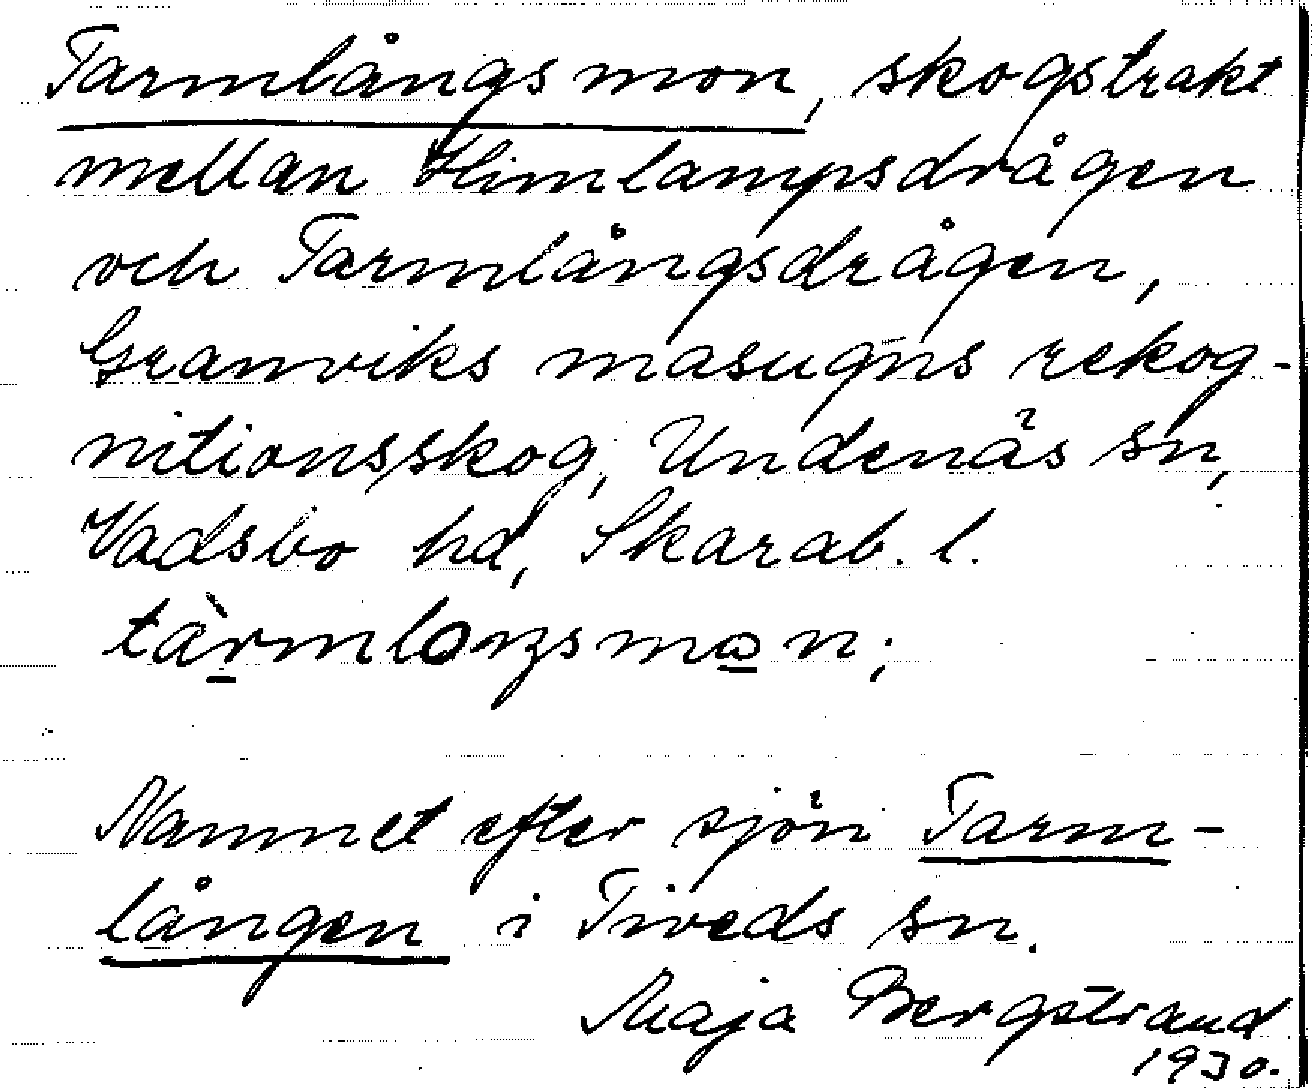 Tarmlångsmon, skogstrakt
mellan Himlampsdrågen
och Tarmlångsdrågen,
Granviks masugns rekog-
nitionsskog, Undenäs sn,
Vadsbo hd, Skarab. l.
Namnet efter sjön Tarm-
lången i Tiveds sn.
Maja Bergstrand
1930.